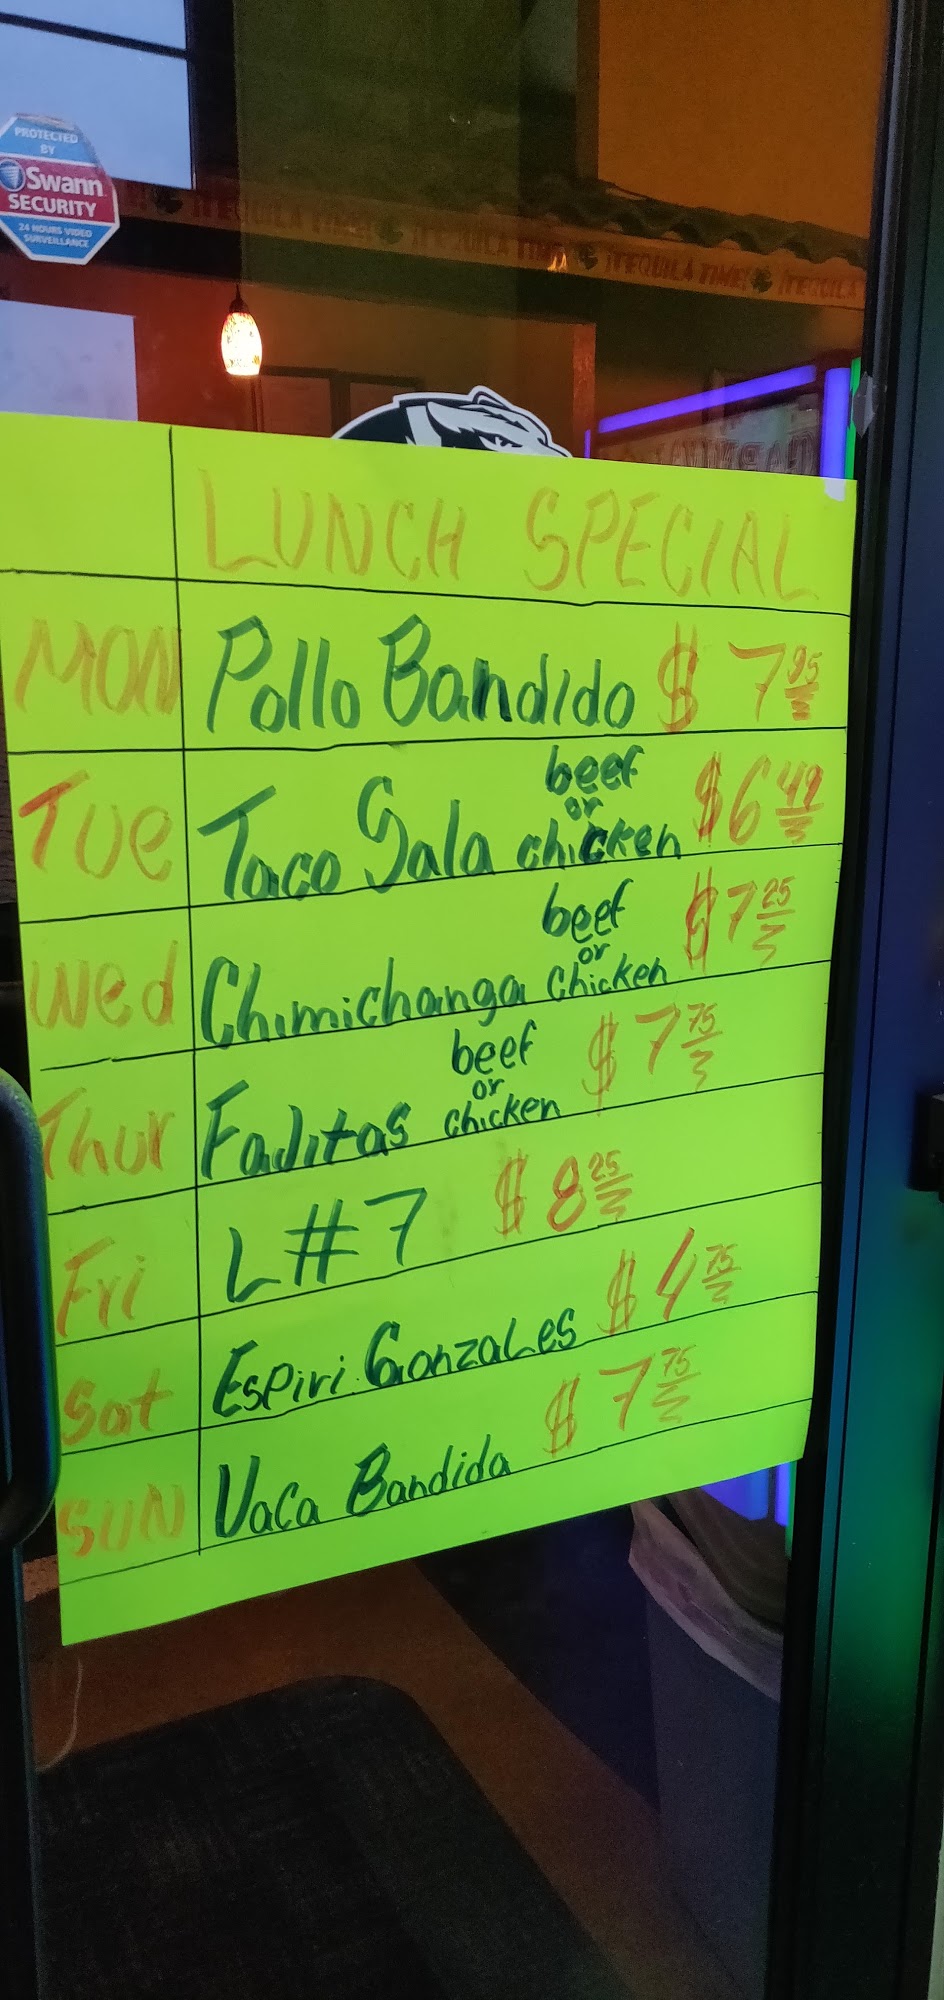 PROTECTED
BY
Swann
SECURITY
24 HOURS VIDEO
SURVEILLANCE
¡TEQUILA TIME! TEQUILA TIME! ¡TEQUILA TIME! ¡TEQUILA
LUNCH SPECIAL
MON Pollo Bandido $ 7 95
Tue Taco Sala beef or chicken $6 49
Wed Chimichanga beef or chicken $7 25
Thur Fajitas beef or chicken $ 7 75
Fri L#7 $ 8 25
Sat Espiri. Gonzales $ 4 75
SUN Vaca Bandida $ 7 75